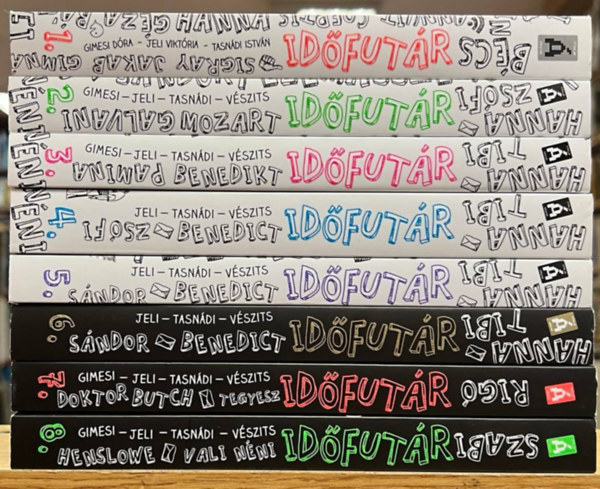 1.
GIMESI DÓRA – JELI VIKTÓRIA – TASNÁDI ISTVÁN
SIGRAY JAKAB
IDŐFUTÁR
BÉCS
Á
2.
GIMESI – JELI – TASNÁDI – VÉSZITS
GALVANI MOZART
IDŐFUTÁR
HANNA ZSÓFI
Á
3.
GIMESI – JELI – TASNÁDI – VÉSZITS
PAMINA BENEDIKT
IDŐFUTÁR
HANNA TIBI
Á
4.
JELI – TASNÁDI – VÉSZITS
ZSÓFI BENEDICT
IDŐFUTÁR
HANNA TIBI
Á
5.
JELI – TASNÁDI – VÉSZITS
SÁNDOR BENEDICT
IDŐFUTÁR
HANNA TIBI
Á
6.
JELI – TASNÁDI – VÉSZITS
SÁNDOR BENEDICT
IDŐFUTÁR
HANNA TIBI
Á
7.
GIMESI – JELI – TASNÁDI – VÉSZITS
DOKTOR BUTCH X TEGYESZ
IDŐFUTÁR
RIGÓ
Á
8.
GIMESI – JELI – TASNÁDI – VÉSZITS
HENSLOWE X VALI NÉNI
IDŐFUTÁR
SZABI
Á